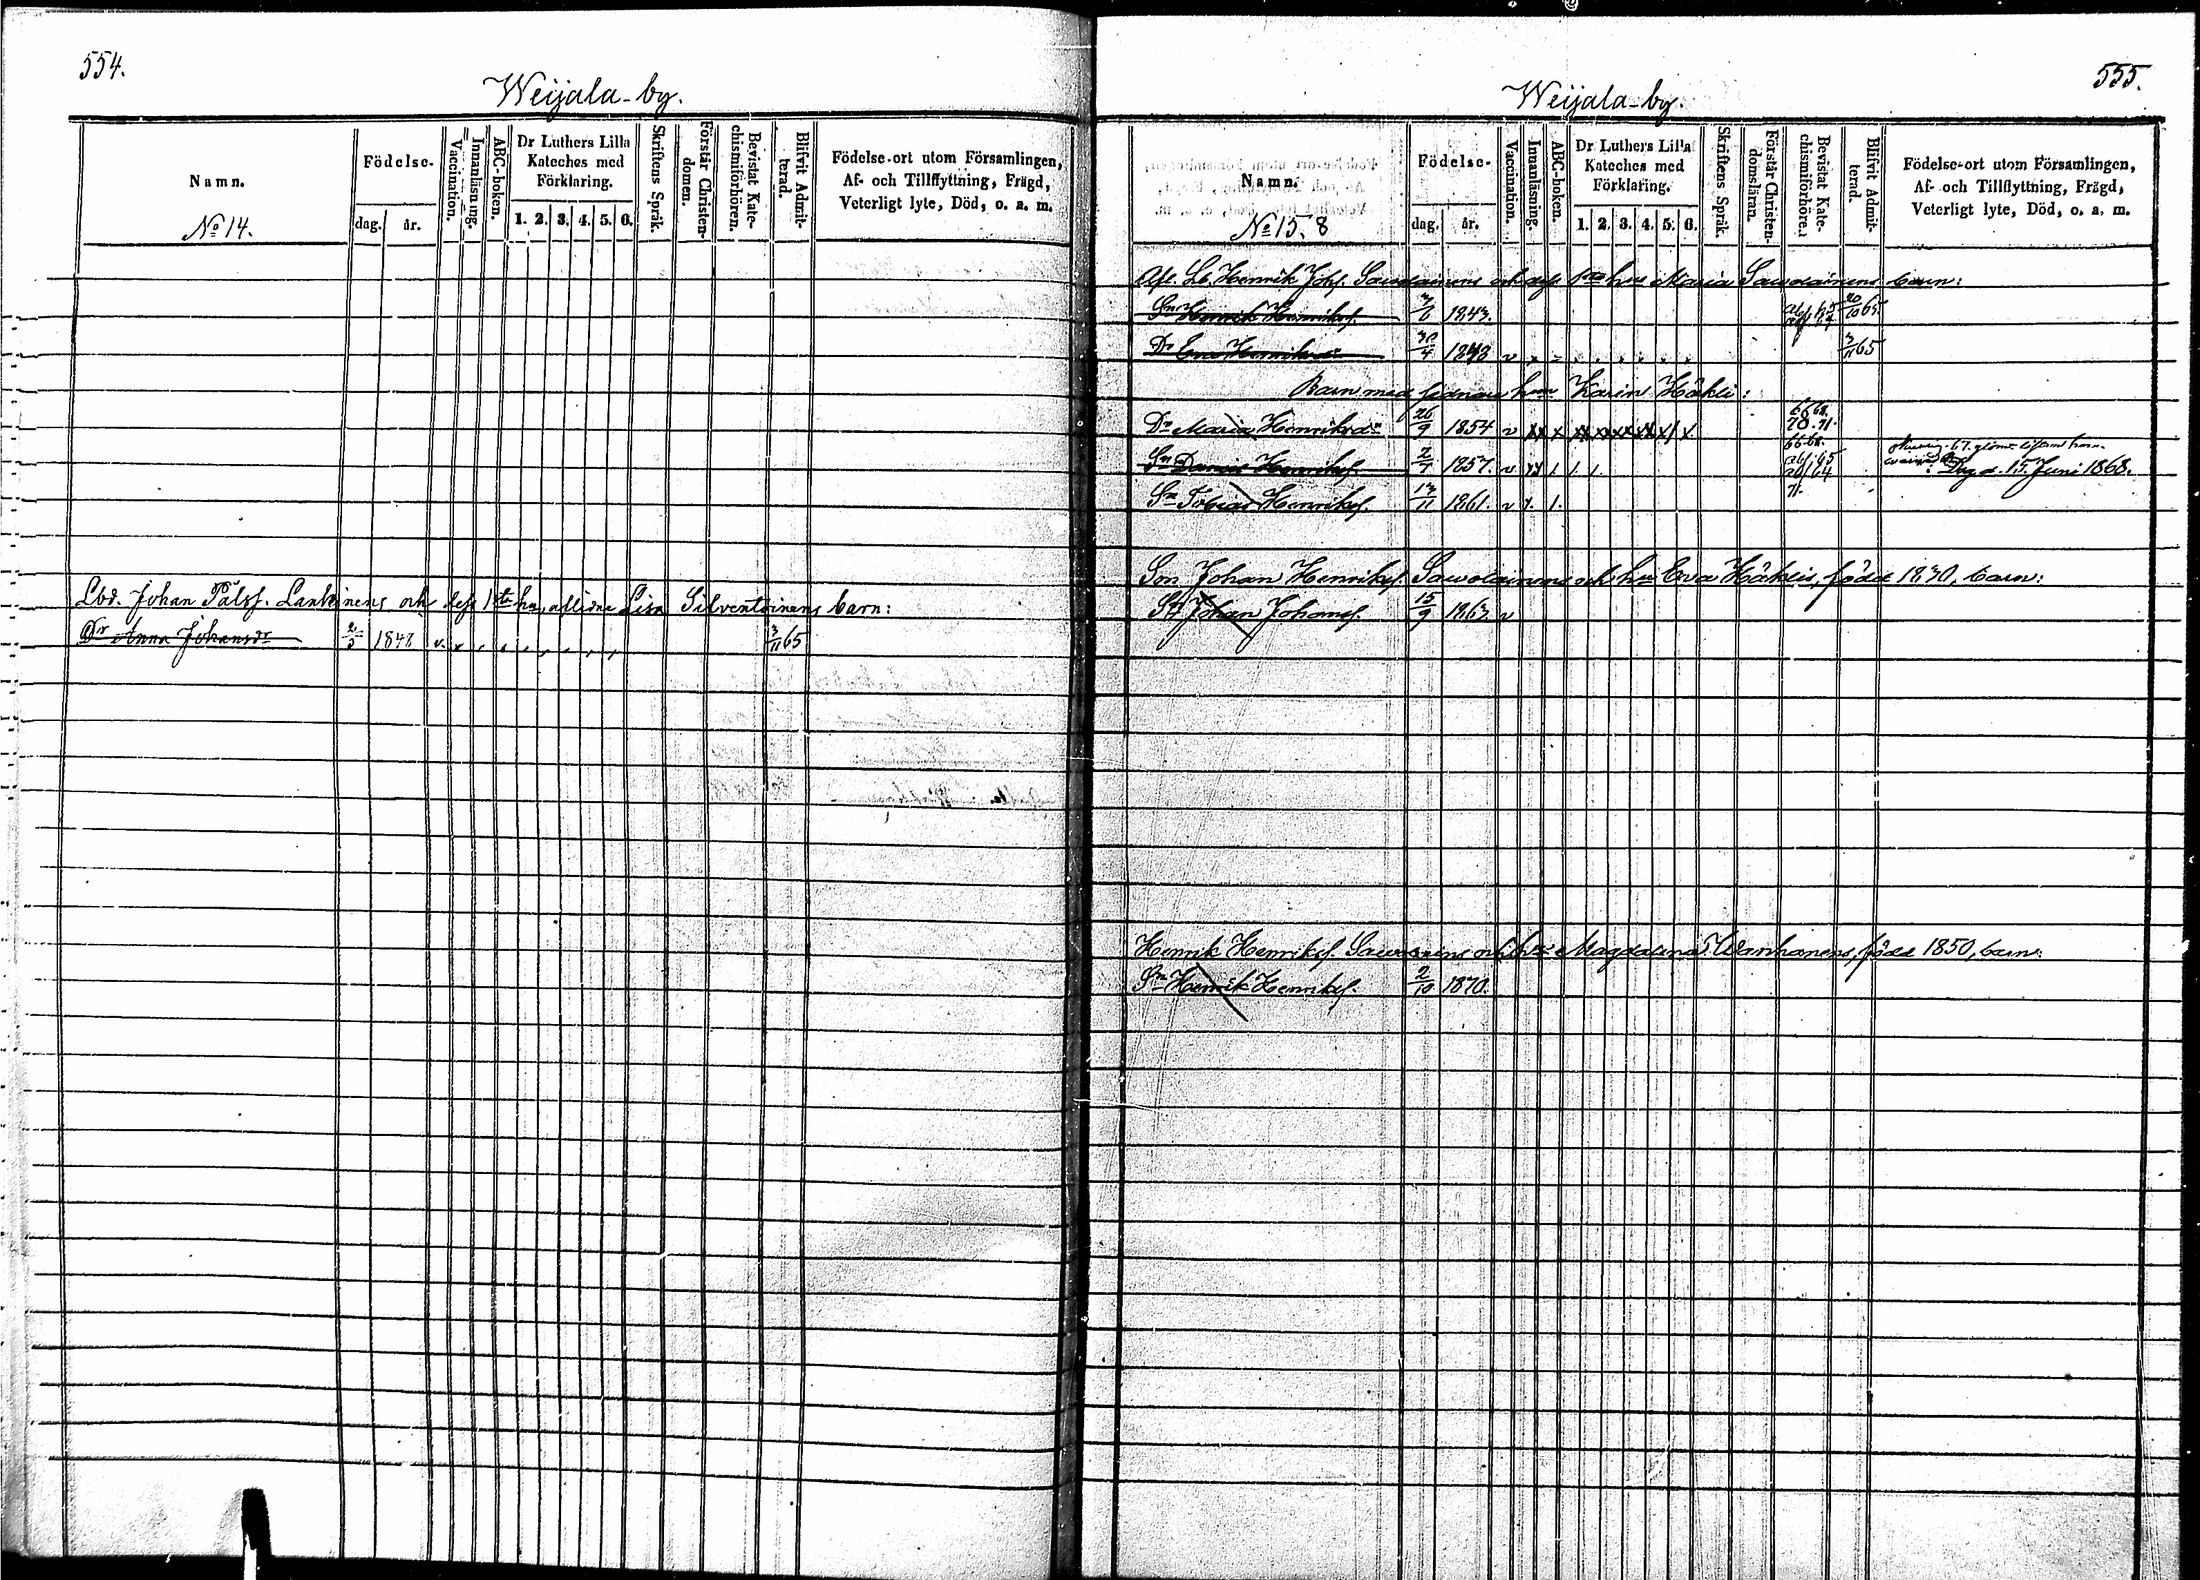 554.
Weijala-by.
Namn.
No 14.
Födelse-
dag. år.
Vaccination.
Innanläsning.
ABC-boken.
Dr Luthers Lilla Kateches med Förklaring.
1. 2. 3. 4. 5. 6.
Skriftens Språk.
Förstår Christendomen.
Bevistat Katechismiförhören.
Blifvit Admitterad.
Födelse-ort utom Församlingen,
Af- och Tillflyttning, Frägd,
Veterligt lyte, Död, o. a. m.
Lbd. Johan Pålss. Lankinens och dess 1sta hu, aflidne Lisa Silventoinens barn:
Dr Anna Johansdr 2/3 1848 v. 3/11 65
555.
Weijala-by.
Namn.
No 15. 8
Födelse-
dag. år.
Vaccination.
Innanläsning.
ABC-boken.
Dr Luthers Lilla Kateches med Förklaring.
1. 2. 3. 4. 5. 6.
Skriftens Språk.
Förstår Christendomsläran.
Bevistat Katechismiförhören.
Blifvit Admitterad.
Födelse-ort utom Församlingen,
Af- och Tillflyttning, Frägd,
Veterligt lyte, Död, o. a. m.
Afl. Lb. Henrik Johs. Sawolainens och dess 1sta hus Maria Sawolainens barn:
Sn Henrik Henriks. 7/6 1843. 20/10 65.
Dr Eva Henriksdr 30/4 1848 v 3/11 65
Barn med sednare hun Karin Häkli:
Dr Maria Henriksdr 26/9 1854 v x x x x x x x x 66 68. 70. 71.
Sn Daniel Henriks. 2/7 1857. v 66 68. Dog d. 15 Juni 1868.
Sn Tobias Henriks. 13/11 1861. v 71.
Son Johan Henriks. Sawolainens och hu Eva Häklis, född 1830, barn:
Sn Johan Johans. 15/9 1863. v
Henrik Henriks. Sawolainens och hus Magdalena Wanhanens, född 1850, barn:
Sn Henrik Henriks. 2/10 1870.